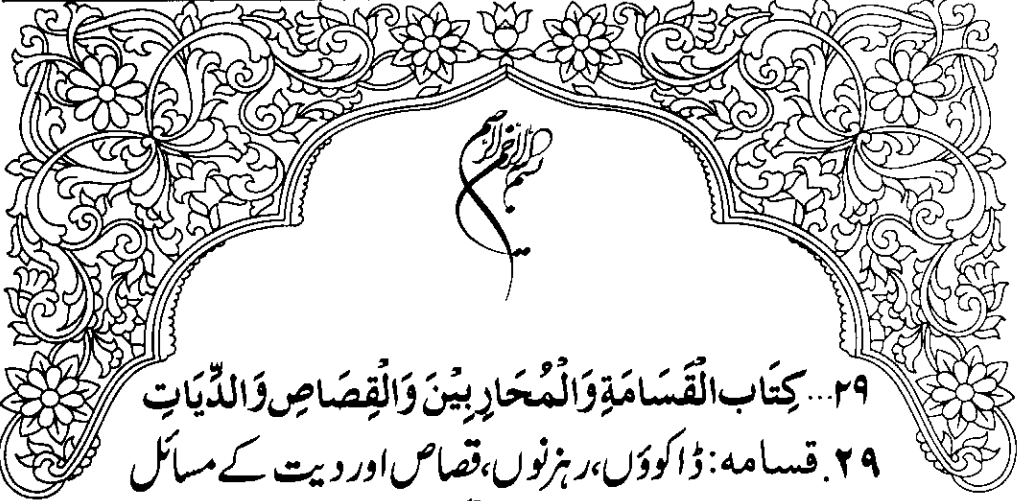 بسم الله الرحمن الرحيم
۲۹... كِتَاب الْقَسَامَةِ وَالْمُحَارِبِيْنَ وَالْقِصَاصِ وَالدِّيَاتِ
۲۹. قسامہ: ڈاکوؤں، رہزنوں، قصاص اور دیت کے مسائل